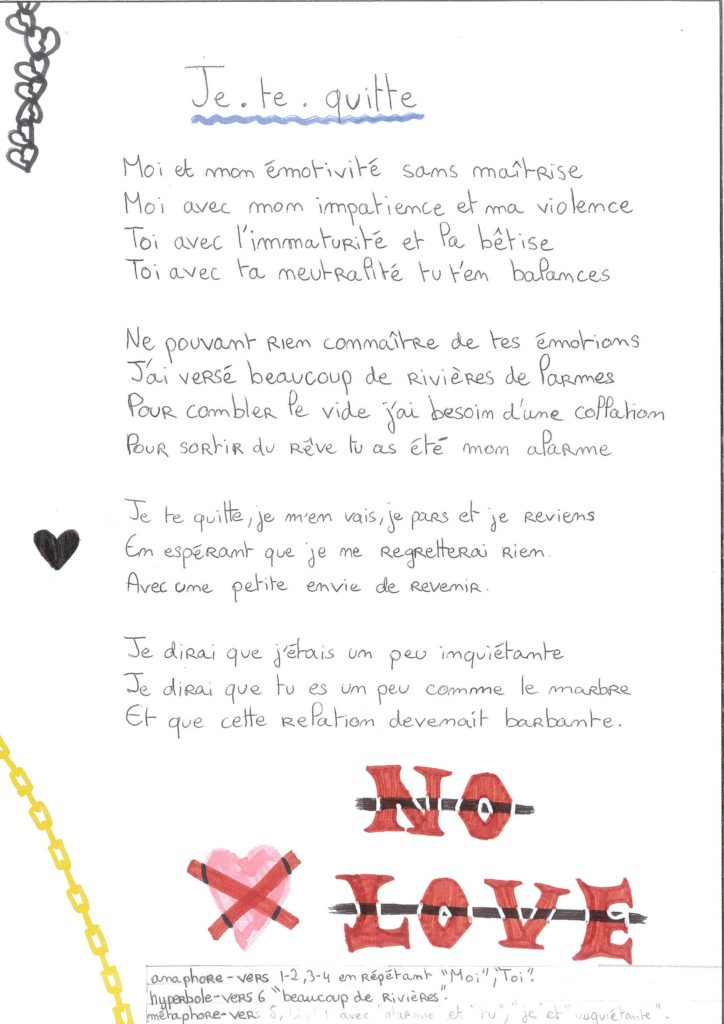 Je.te.quitte
Moi et mon émotivité sans maîtrise
Moi avec mon impatience et ma violence
Toi avec l'immaturité et la bêtise
Toi avec ta neutralité tu t'en balances
Ne pouvant rien connaître de tes émotions
J'ai versé beaucoup de rivières de larmes
Pour combler le vide j'ai besoin d'une collation
Pour sortir du rêve tu as été mon alarme
Je te quitte, je m'en vais, je pars et je reviens
En espérant que je ne regretterai rien.
Avec une petite envie de revenir.
Je dirai que j'étais un peu inquiétante
Je dirai que tu es un peu comme le marbre
Et que cette relation devenait barbante.
NO
LOVE
anaphore-vers 1-2,3-4 en répétant "Moi", "Toi".
hyperbole-vers 6 "beaucoup de rivières".
métaphore-vers 8, 12, avec "alarme" et "tu", "je" et "inquiétante".